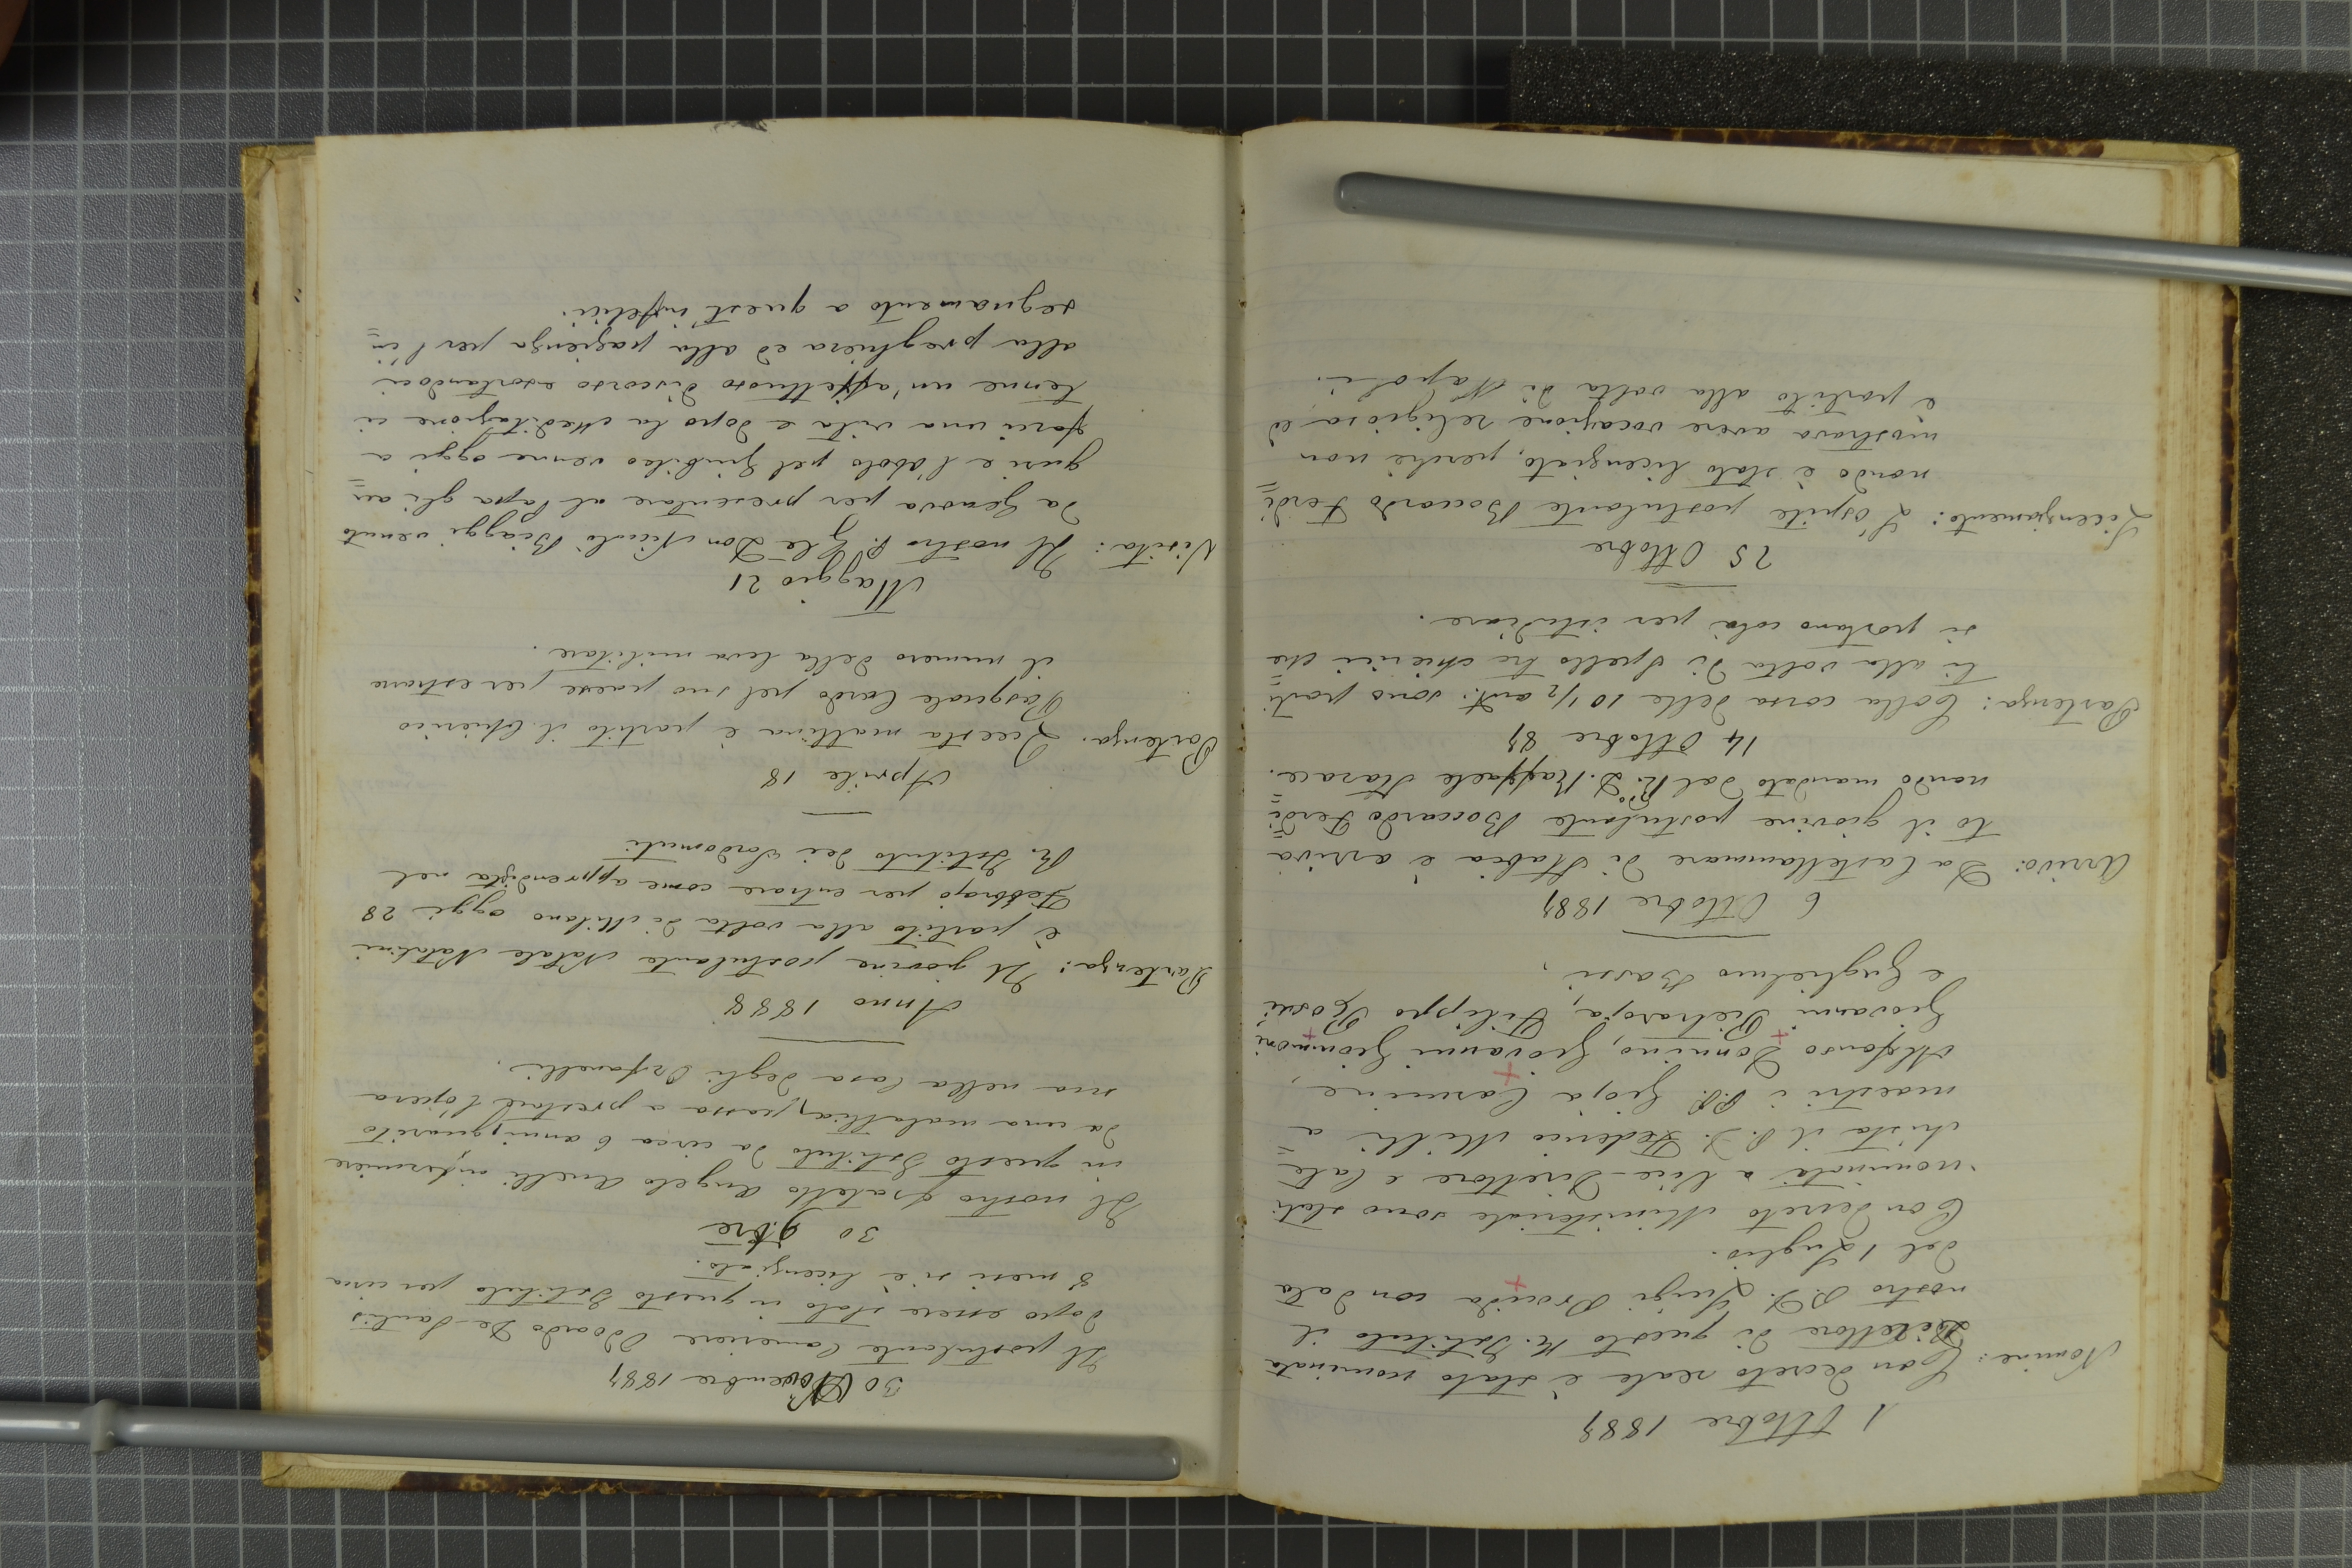 1 Ottobre 1887
Nomine: Con decreto reale è stato nominato
Direttore di questo R. Istituto il
nostro P. D. Luigi Procida con data
del 1 Luglio.
Con decreto Ministeriale sono stati
nominati a Vice-Direttore e Cate=
chista il P. D. Federico Milli a
maestri i PP. Gioja Carmine,
Alfonso Donnino, Giovanni Gionmoni
Giovanni Pietraroja, Filippo Rossi
e Guglielmo Bassi.
6 Ottobre 1887
Arrivo: Da Castellammare di Stabia è arriva
to il giovine postulante Boccardo Ferdi=
nando mandato dal R.do D. Raffaele Starace.
14 Ottobre 87
Partenza: Colla corsa delle 10 1/2 ant. sono parti=
ti alla volta di Spello tre chierici che
si portano colà per istudiare.
25 Ottobre
Licenziamento: L'ospite postulante Boccardo Ferdi=
nando è stato licenziato, perchè non
mostrava avere vocazione religiosa ed
è partito alla volta di Napoli.
30 Novembre 1887
Il postulante Cameriere Odoardo De-Santis
dopo essere stato in questo Istituto per circa
8 mesi si è licenziato.
30 9bre
Il nostro fratello Angelo Anelli infermiere
in questo Istituto da circa 6 anni, guarito
da una malattia, passa a prestare l'opera
sua nella Casa degli Orfanelli.
Anno 1888
Partenza: Il giovine postulante Natale Natalini
è partito alla volta di Milano oggi 28
Febbrajo per entrare come apprendista nel
R. Istituto dei Sordomuti
Aprile 18
Partenza. Questa mattina è partito il Chierico
Pasquale Cardo pel suo paese per estrarre
il numero della leva militare.
Maggio 21
Visita: Il nostro P. G.le Don Nicolò Biaggi venuto
da Genova per presentare al Papa gli au=
guri e l'obolo pel Giubileo venne oggi a
farci una visita e dopo la Meditazione ci
tenne un'affettuoso discorso esortandoci
alla preghiera ed alla pazienza per l'in=
segnamento a quest'infelici.